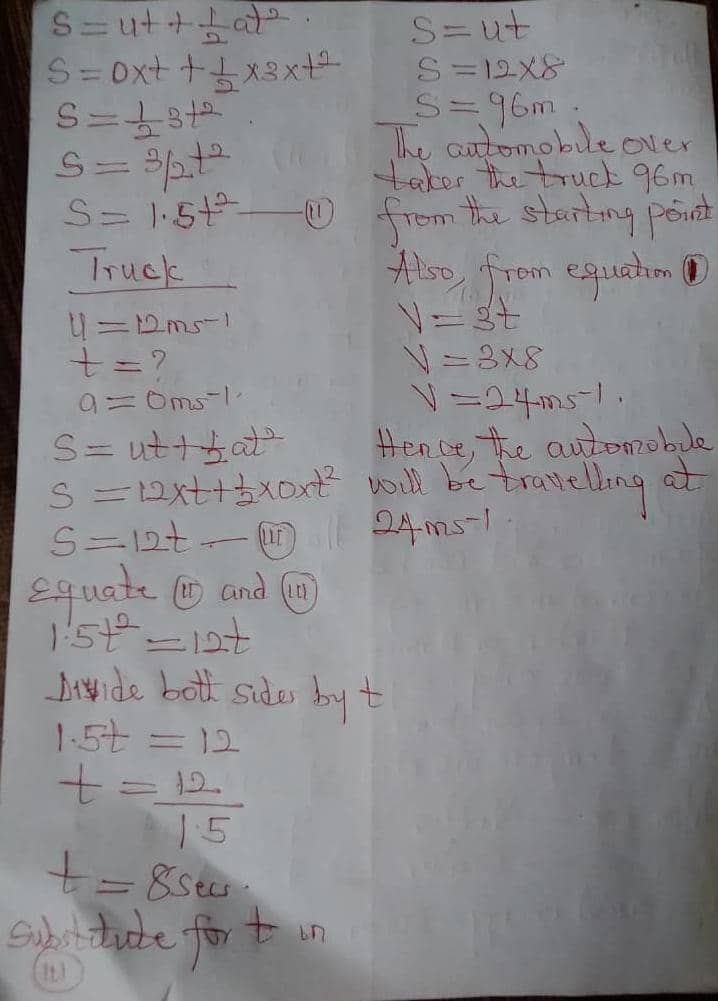 S = ut + 1/2 at²
S = 0xt + 1/2 x3xt²
S = 1/2 3t²
S = 3/2 t²
S = 1.5t² — (II)
Truck
U = 12ms-1
t = ?
a = 0ms-1.
S = ut + 1/2 at²
S = 12xt + 1/2 x0xt²
S = 12t — (III)
Equate (II) and (III)
1.5t² = 12t
Divide both sides by t
1.5t = 12
t = 12
1.5
t = 8secs.
Substitute for t in
(III)
S = ut
S = 12x8
S = 96m.
The automobile over
takes the truck 96m
from the starting point
Also, from equation (I)
V = 3t
V = 3x8
V = 24ms-1.
Hence, the automobile
will be travelling at
24ms-1.